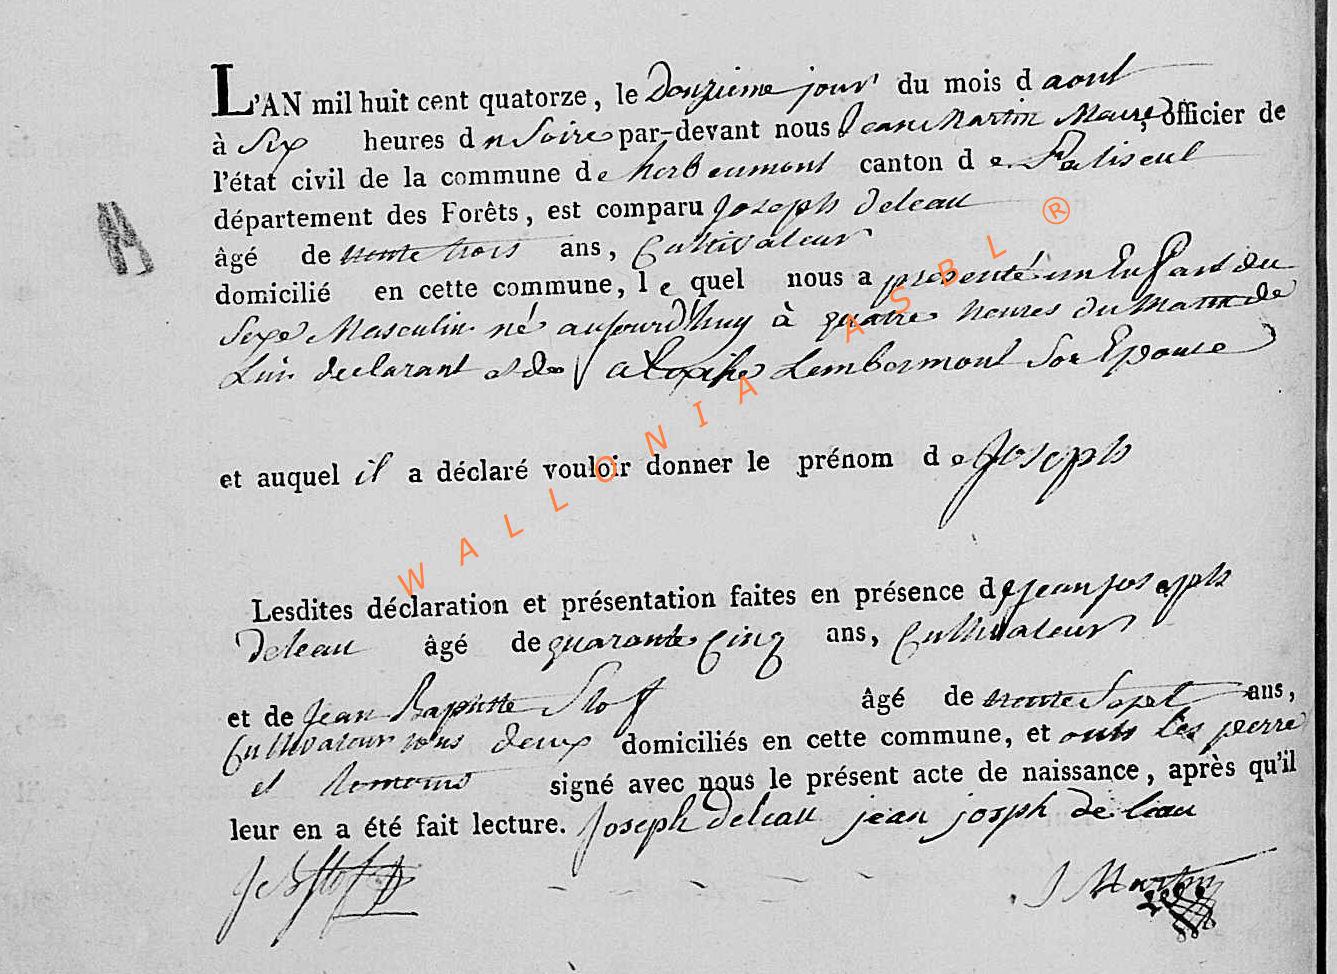 L'AN mil huit cent quatorze, le Douzieme jour du mois d aout
à Six heures du Soire par-devant nous Jean Martin Maire, officier de
l'état civil de la commune de herbeumont canton de Paliseul
département des Forêts, est comparu Joseph deleau
âgé de trente trois ans, Cultivateur
domicilié en cette commune, le quel nous a présenté un Enfant du
Sexe Masculin né aujourd'huy à quatre heures du Matin de
Lui declarant et de Lembermont Son Epouse
et auquel il a déclaré vouloir donner le prénom de Joseph
Lesdites déclaration et présentation faites en présence de jean joseph
deleau âgé de quarante cinq ans, Cultivateur
et de Jean Baptiste Stof âgé de trente Sept ans,
Cultivateur tous deux domiciliés en cette commune, et onts les perre
et temoins signé avec nous le présent acte de naissance, après qu'il
leur en a été fait lecture. Joseph deleau jean josph de leau
J Martin
WALLONIA ASBL ®